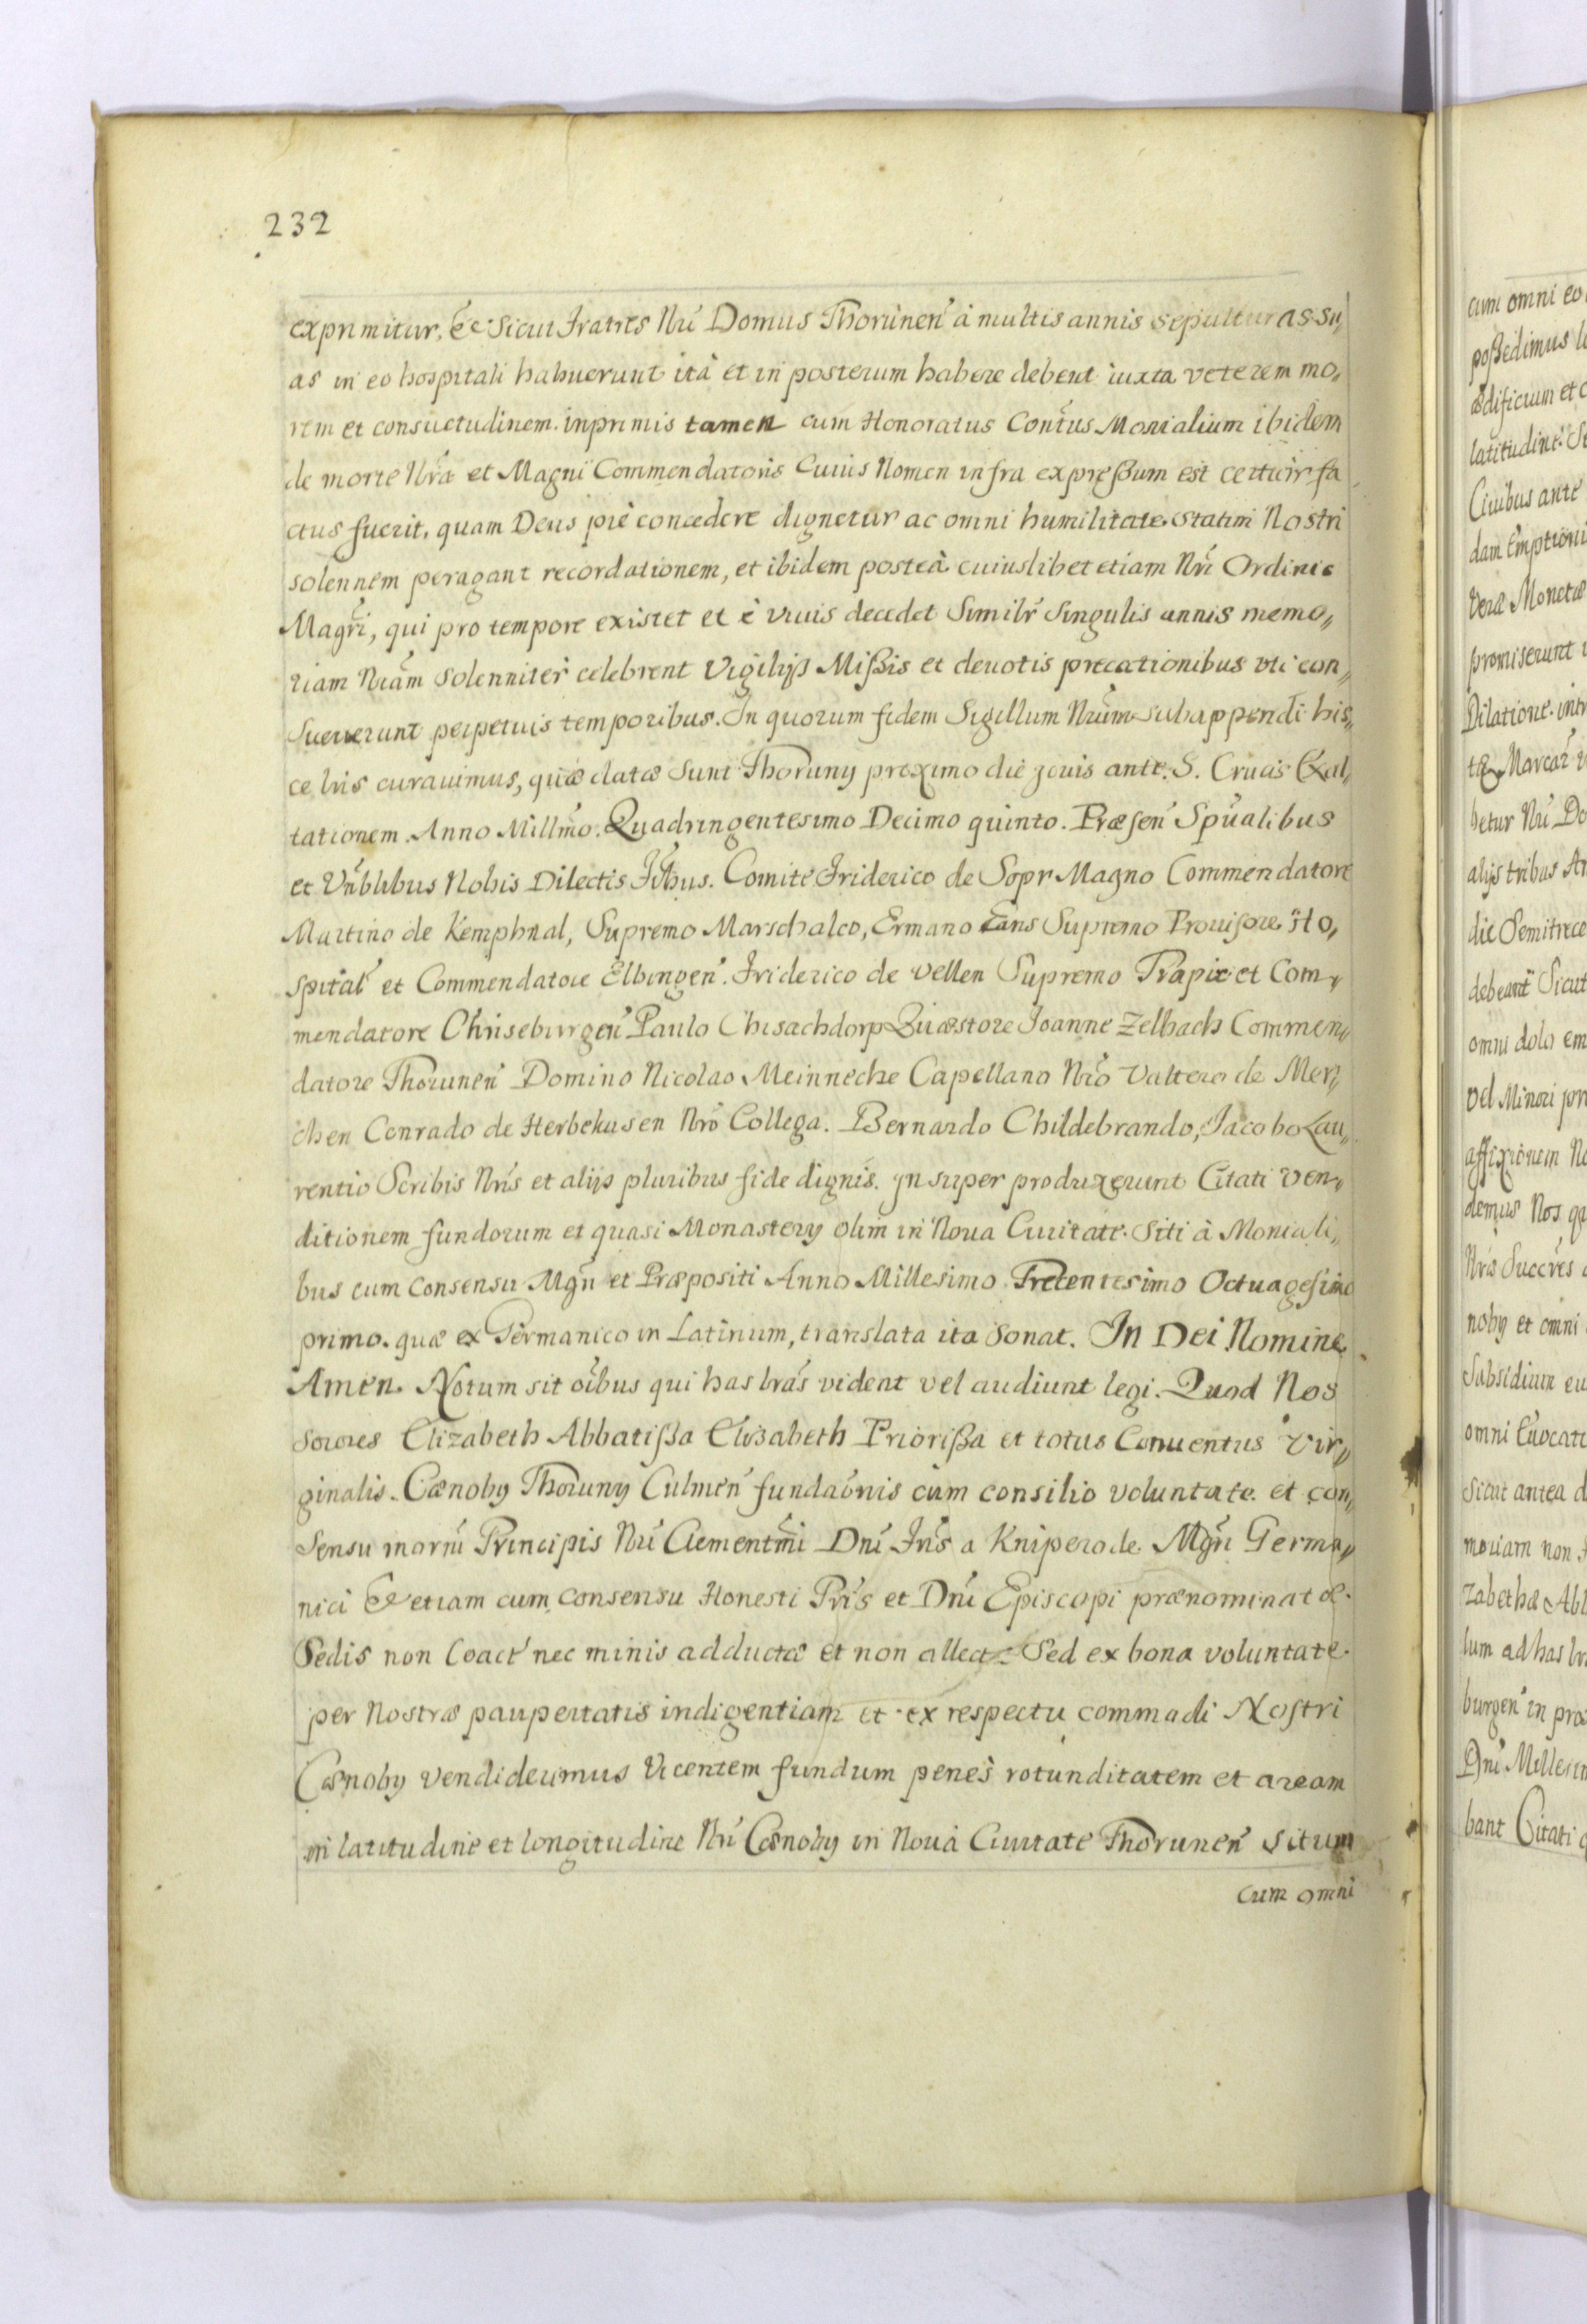 232
exprimitur, Et sicut Fratres Nrī Domus Thorunen̄ à multis annis sepulturas su„
as in eo hospitali habuerunt ità et in posterum habere debent iuxta veterem mo„
rem et consuetudinem. inprimis tamen cum Honoratus Conūtus Monialium ibidem
de morte Nrā et Magni Commendatoris Cuius Nomen infra expreßum est certior fa
ctus fuerit, quam Deus piè concedere dignetur ac omni humilitate. statim Nostri
solennem peragant recordationem, et ibidem posteà cuiuslibet etiam Nrī Ordinis
Magrī, qui pro tempore existet et è vivis decedet Similr̄ Singulis annis memo„
riam Nrām solenniter celebrent Vigilijs Mißis et deuotis precationibus vti con„
sueuerunt perpetuis temporibus. In quorum fidem Sigillum Nrūm subappendi his„
ce lris curauimus, quæ datæ sunt Thoruny proximo die Jouis ante. S. Crucis Exal„
tationem. Anno Millmō. Quadringentesimo Decimo quinto. Præsen̄ Spūalibus
et Vnb̄libus Nobis Dilectis Frībus. Comite Friderico de Sopr Magno Commendatore
Martino de Kemphnal, Supremo Marschalco, Ermano Gans Supremo Prouisore Ho„
spital̄ et Commendatore Elbingen̄. Friderico de Vellen Supremo Trapie et Com„
mendatore Chriseburgen̄ Paulo Chisachdorp Quæstore Joanne Zelbach Commen„
datore Thorunen̄ Domino Nicolao Meinneche Capellano Nrō Valtero de Mer„
chen Conrado de Herbekusen Nrō Collega. Bernardo Childebrando, Jacobo Lau„
rentio Scribis Nrīs et alijs pluribus fide dignis. Insuper produxerunt Citati Ven„
ditionem fundorum et quasi Monastery olim in Noua Ciuitate. Siti à Moniali„
bus cum consensu Mgrī et Præpositi Anno Millesimo Trecentesimo Octuagesimo
primo. quæ ex Germanico in Latinum, translata ita sonat. In Dei Nomine
Amen. Notum sit oībus qui has lrās vident vel audiunt legi. Quod Nos
Sorores Elizabeth Abbatißa Elisabeth Priorißa et totus Conuentus Vir„
ginalis. Cænoby Thoruny Culmen̄ fundaōnis cum consilio voluntate. et con„
sensu Principis Nrī Clementmī Dnī Frīs a Kniperode. Mgrī Germa„
nici Et etiam cum consensu Honesti Prīs et Dnī Episcopi prænominatæ.
Sedis non Coact̄ nec minis adductæ et non allectæ Sed ex bona voluntate.
per Nostræ paupertatis indigentiam et ex respectu commadi Nostri
Cænoby vendiderimus Vicentem fundum penes rotunditatem et aream
in latitudine et longitudine Nrī Cænoby in Nouà Ciuitate Thorunen̄ Situm
cum omni
cum omni eo
poßedimus
ædificium et
latitudine. S
Ciuibus ante
dam Emptioni
Veræ Monetæ
promiserunt
Dilatione. int
Marcar̄
betur Nrī Do
alijs tribus An
die Semitrece
debeant Sicut
omni dolo em
vel Minori pr
affixionem No
demus Nos qu
Nrōs Succr̄es
noby et omni
Subsidium eu
omni Euocati
sicut antea d
mouiam non
zabethæ Abb
lum ad has lr
burgen̄ in pro
Dnī Millesim
bant Citati